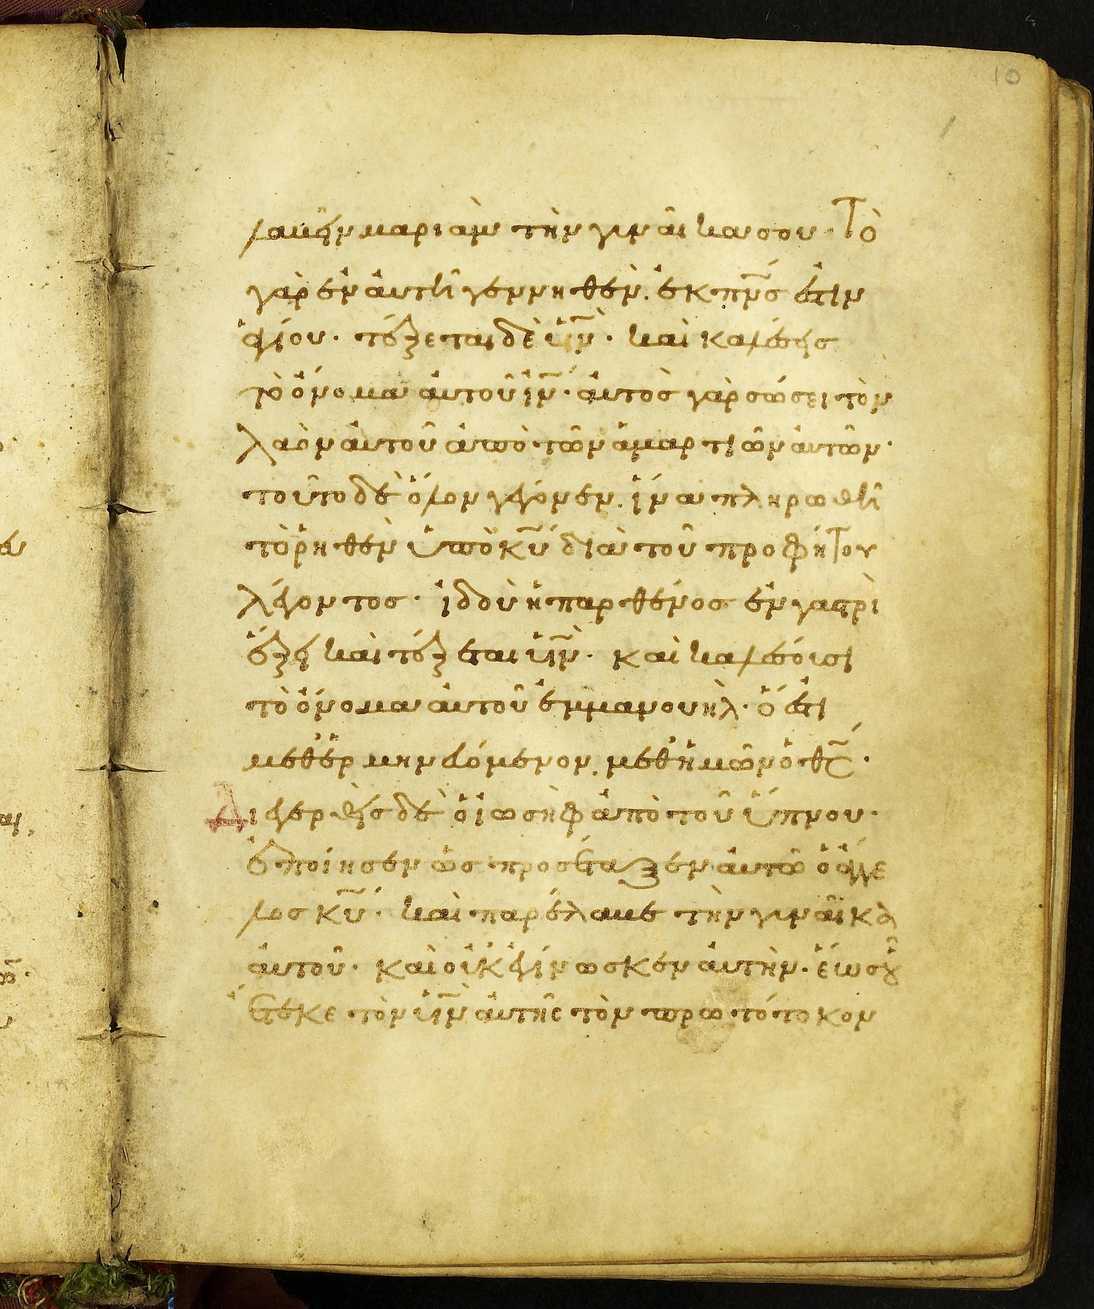 10
λαβεῖν μαριὰμ τὴν γυναῖκα σου· Τὸ
γὰρ ἐν ἀυτῆ γεννηθὲν. ἐκ πν̅σ ἐστιν
ἁγίου· τέξεται δὲ υ̅ν̅· καὶ καλέσεις
τὸ ὄνομα ἀυτοῦ ι̅ν̅· ἀυτὸσ γὰρ σώσει τὸν
λαὸν ἀυτοῦ ἀπὸ τῶν ἁμαρτιῶν ἀυτῶν·
τοῦτο δὲ ὅλον γέγονεν. ἵνα πληρωθῆ
τὸ ῥηθὲν ὑπὸ κ̅υ̅ διὰ τοῦ προφήτου
λέγοντος· ἰδοὺ ἡ παρθένοσ ἐν γαστρὶ
ἕξει καὶ τέξεται υ̅ν̅· καὶ καλέσουσι
τὸ ὄνομα ἀυτοῦ ἐμμανουηλ· ὅ ἐστι
μεθερμηνευόμενον, μεθ ἡμῶν ὁ θ̅ς̅·
Διεγερθεὶς δὲ ὁ ἰωσὴφ ἀπὸ τοῦ ὕπνου·
ἐποίησεν ὡσ προσέταξεν ἀυτῶ ὁ ἄγγε
λοσ κ̅υ̅· καὶ παρέλαβε τὴν γυναῖκα
ἀυτοῦ· καὶ οὐκ ἐγίνωσκεν ἀυτὴν· ἕωσ οὗ
ἔτεκε τὸν υ̅ν̅ ἀυτῆς τὸν πρωτότοκον